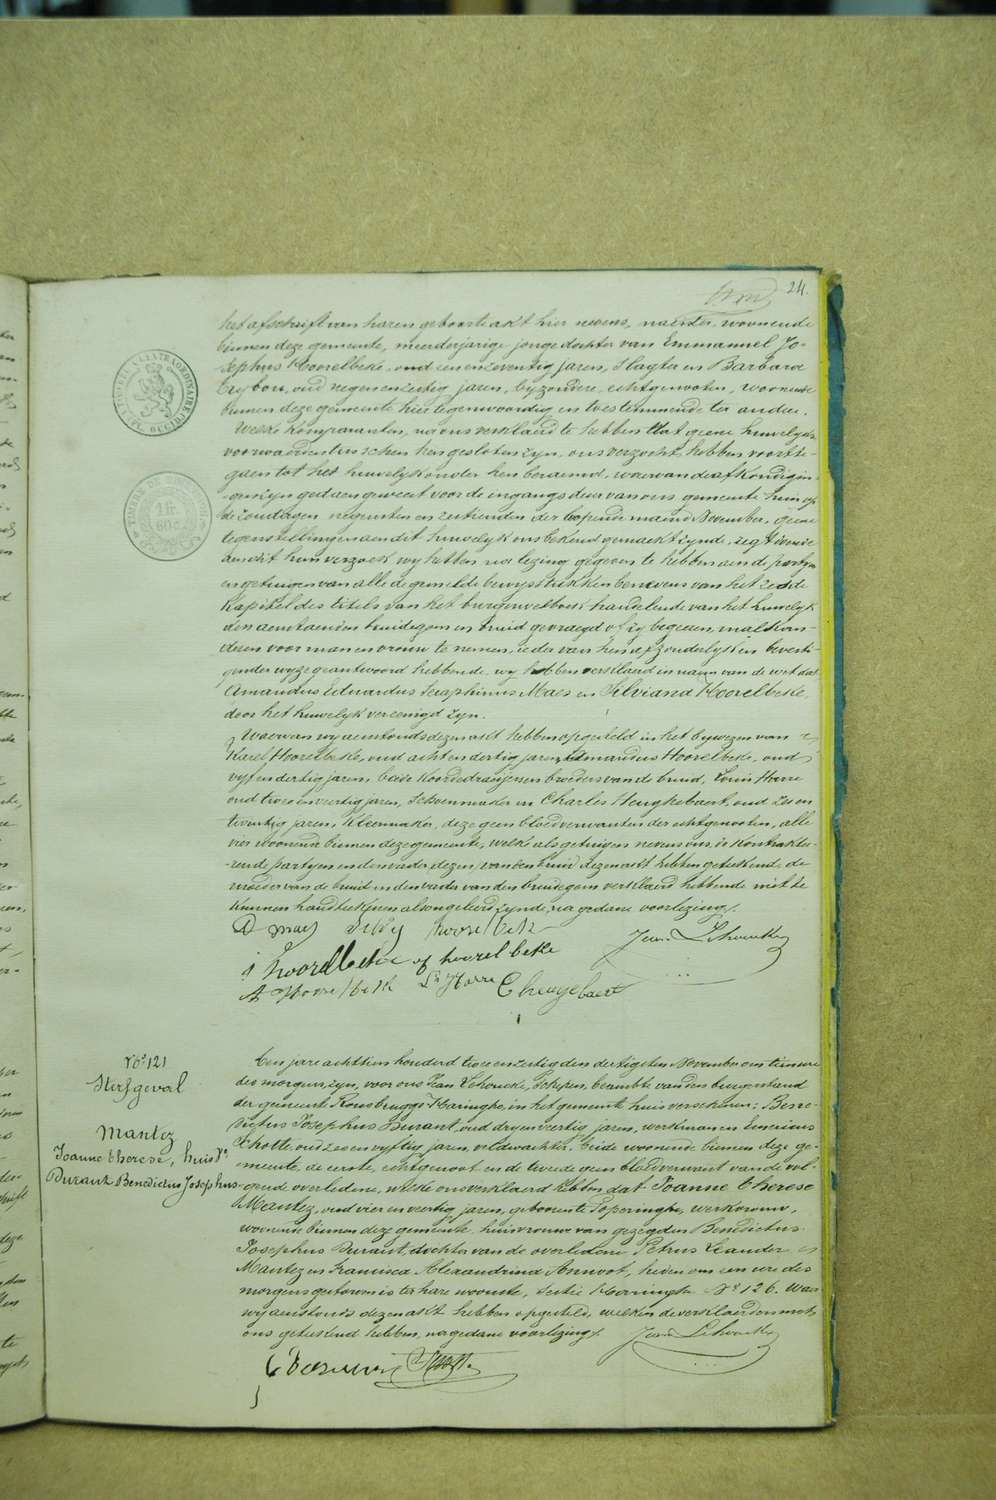 24.
het afschrift van haren geboorteakt hier nevens, naeister, woonende
binnen deze gemeente, meerderjarige jonge dochter van Emmanuel Jo-
sephus Hoorelbeke, oud een en zeventig jaren, Slagter en Barbara
Crybou, oud negen en zestig jaren, byzondere, echtgenoten, woonende
binnen deze gemeente hier tegenwoordig en toestemmende ter andere.
Welke komparanten, na ons verklaard te hebben dat geene huwelyks
voorwaerden tusschen hen gesloten zyn, ons verzocht hebben voorts te
gaen tot het huwelyk onder hen beraemd, waervan de afkondigin-
gen zyn gedaen geweest voor de ingangs deur van ons gemeente huis op
de zondagen negensten en zestienden der loopende maend November, geene
tegenstellingen aen dit huwelyk ons bekend gemaekt zynde, regt doende
aen dit hun verzoek wy hebben na lezing gegeven te hebben aen de partyen
en getuigen van alle de gemelde bewysstukken benevens van het zesde
kapitel des titels van het burgerwetboek handelende van het huwelyk
den aenstaenden bruidegom en bruid gevraegd of zy begeeren malkan-
deren voor man en vrouw te nemen, ieder van hen afzonderlyk en bevesti-
gender wyze geantwoord hebbende, wy hebben verklaard in naem van de wet dat
Amandus Eduardus Seraphinus Maes en Silviana Hoorelbeke,
door het huwelyk vereenigd zyn.
Waervan wy aenstonds dezen akt hebben opgesteld in het bywezen van
Karel Hoorelbeke, oud acht en dertig jaren, Amandus Hoorelbeke, oud
vyf en dertig jaren, beide koordedraeijers en broeders van de bruid, Louis Horre
oud twee en veertig jaren, Schoenmaker en Charles Heughebaert, oud zes en
twintig jaren, kleermaker, deze geen bloedverwanten der echtgenoten, alle
vier woonende binnen deze gemeente, welke als getuigen nevens ons, de kontrakte-
rende partyen en den vader dezer, van den bruid dezen akt hebben geteekend, de
moeder van de bruid en den vader van den bruidegom verklaard hebbende niet te
kunnen handteekenen als ongeleerd zynde, na gedane voorlezing.
D maes Silvy hoorelbeke
Jean Lehoucke
j hoorelbeke of hoorelbeke
A Hoorelbeke Ls Horre C heugebaert
No. 121
Sterfgeval
Mantez
Joanne Therese, huisv.
Durant Benedictus Josephus
Een jare achttien honderd twee en zestig den dertigsten November om tien ure
des morgens, zyn, voor ons Jean Lehoucke, Schepen, beambte van den burgerstand
der gemeente Rousbrugge-Haringhe, in het gemeente huis verschenen: Bene-
dictus Josephus Durant, oud dry en veertig jaren, werkman en Louis
Cholle, oud zes en vyftig jaren, veldwachter, beide woonende binnen deze ge-
meente, de eerste, echtgenoot en de tweede geen bloedverwant van de vol-
gende overledene, welke ons verklaard hebben dat Joanne Therese
Mantez, oud vier en veertig jaren, geboren te Poperinghe, werkvrouw,
woonende binnen deze gemeente, huisvrouwe van gezegden Benedictus
Josephus Durant, dochter van de overledene Petrus Leander
Mantez en Francisca Alexandrina Annoot, heden om een ure des
morgens gestorven is ter hare woonste, Sectie Haringhe No 126. Waer
wy aenstonds dezen akt hebben opgesteld, welken de verklaerders met
ons geteekend hebben, na gedane voorlezing.
Jean Lehoucke